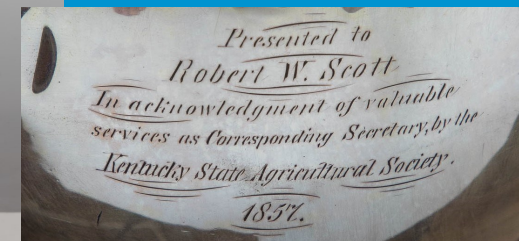 Presented to
Robert W. Scott
In acknowledgment of valuable
services as Corresponding Secretary, by the
Kentucky State Agricultural Society.
1857.